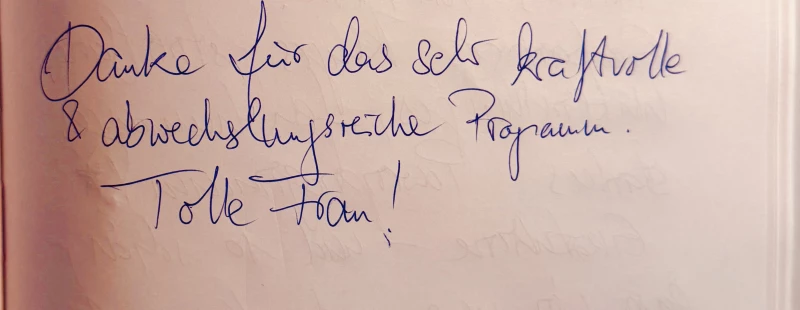 Danke für das sehr kraftvolle
& abwechslungsreiche Programm.
Tolle Frau!